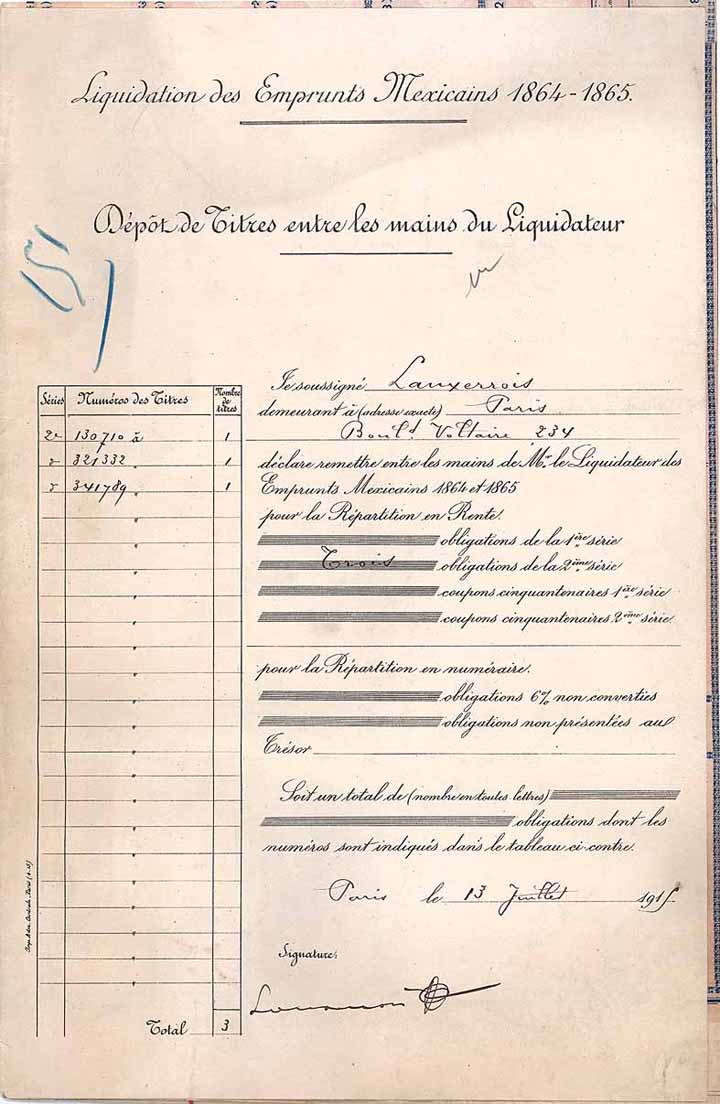 Liquidation des Emprunts Mexicains 1864-1865.
Dépôt de Titres entre les mains du Liquidateur
Séries Numéros des Titres Nombre de titres
2e 130710 à 1
" 321332 " 1
" 341789 " 1
Total 3
Je soussigné Lauxerrois
demeurant à (adresse exacte) Paris
Boul.d Voltaire 234
déclare remettre entre les mains de Mr. le Liquidateur des
Emprunts Mexicains 1864 et 1865
pour la Répartition en Rente:
obligations de la 1ère série
Trois obligations de la 2ème série
coupons cinquantenaires 1ère série
coupons cinquantenaires 2ème série
pour la Répartition en numéraire.
obligations 6% non converties
obligations non présentées au
Trésor
Soit un total de (nombre en toutes lettres)
obligations dont les
numéros sont indiqués dans le tableau ci-contre.
Paris le 13 Juillet 1915.
Signature: